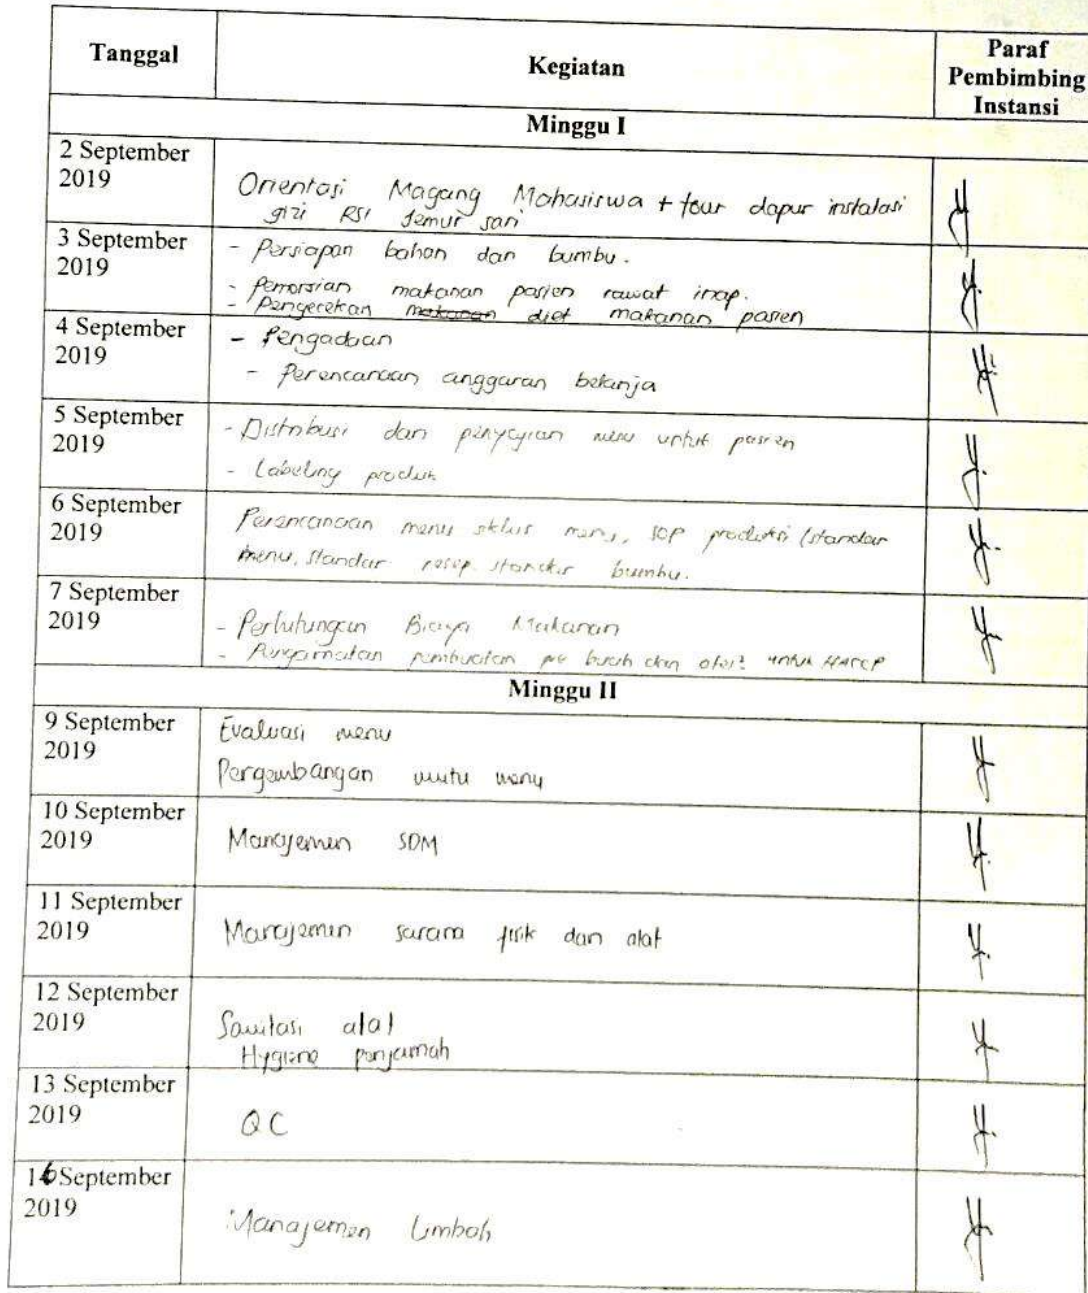 Tanggal Kegiatan Paraf Pembimbing Instansi
Minggu I
2 September 2019
Orientasi Magang Mahasiswa + tour dapur instalasi
gizi RSI Jemur sari
3 September 2019
- Persiapan bahan dan bumbu.
- Pemorsian makanan pasien rawat inap.
- Pengecekan makanan diet makanan pasien
4 September 2019
- Pengadaan
- Perencanaan anggaran belanja
5 September 2019
- Distribusi dan penyajian menu untuk pasien
- Labeling produk
6 September 2019
Perencanaan menu siklus menu, SOP produksi (standar
menu, standar resep standar bumbu.
7 September 2019
- Perhitungan Biaya Makanan
- Pengamatan pembuatan buah dan untuk HACCP
Minggu II
9 September 2019
Evaluasi menu
Pengembangan mutu menu
10 September 2019
Manajemen SDM
11 September 2019
Manajemen sarana fisik dan alat
12 September 2019
Sanitasi alat
Hygiene penjamah
13 September 2019
QC
16 September 2019
Manajemen Limbah